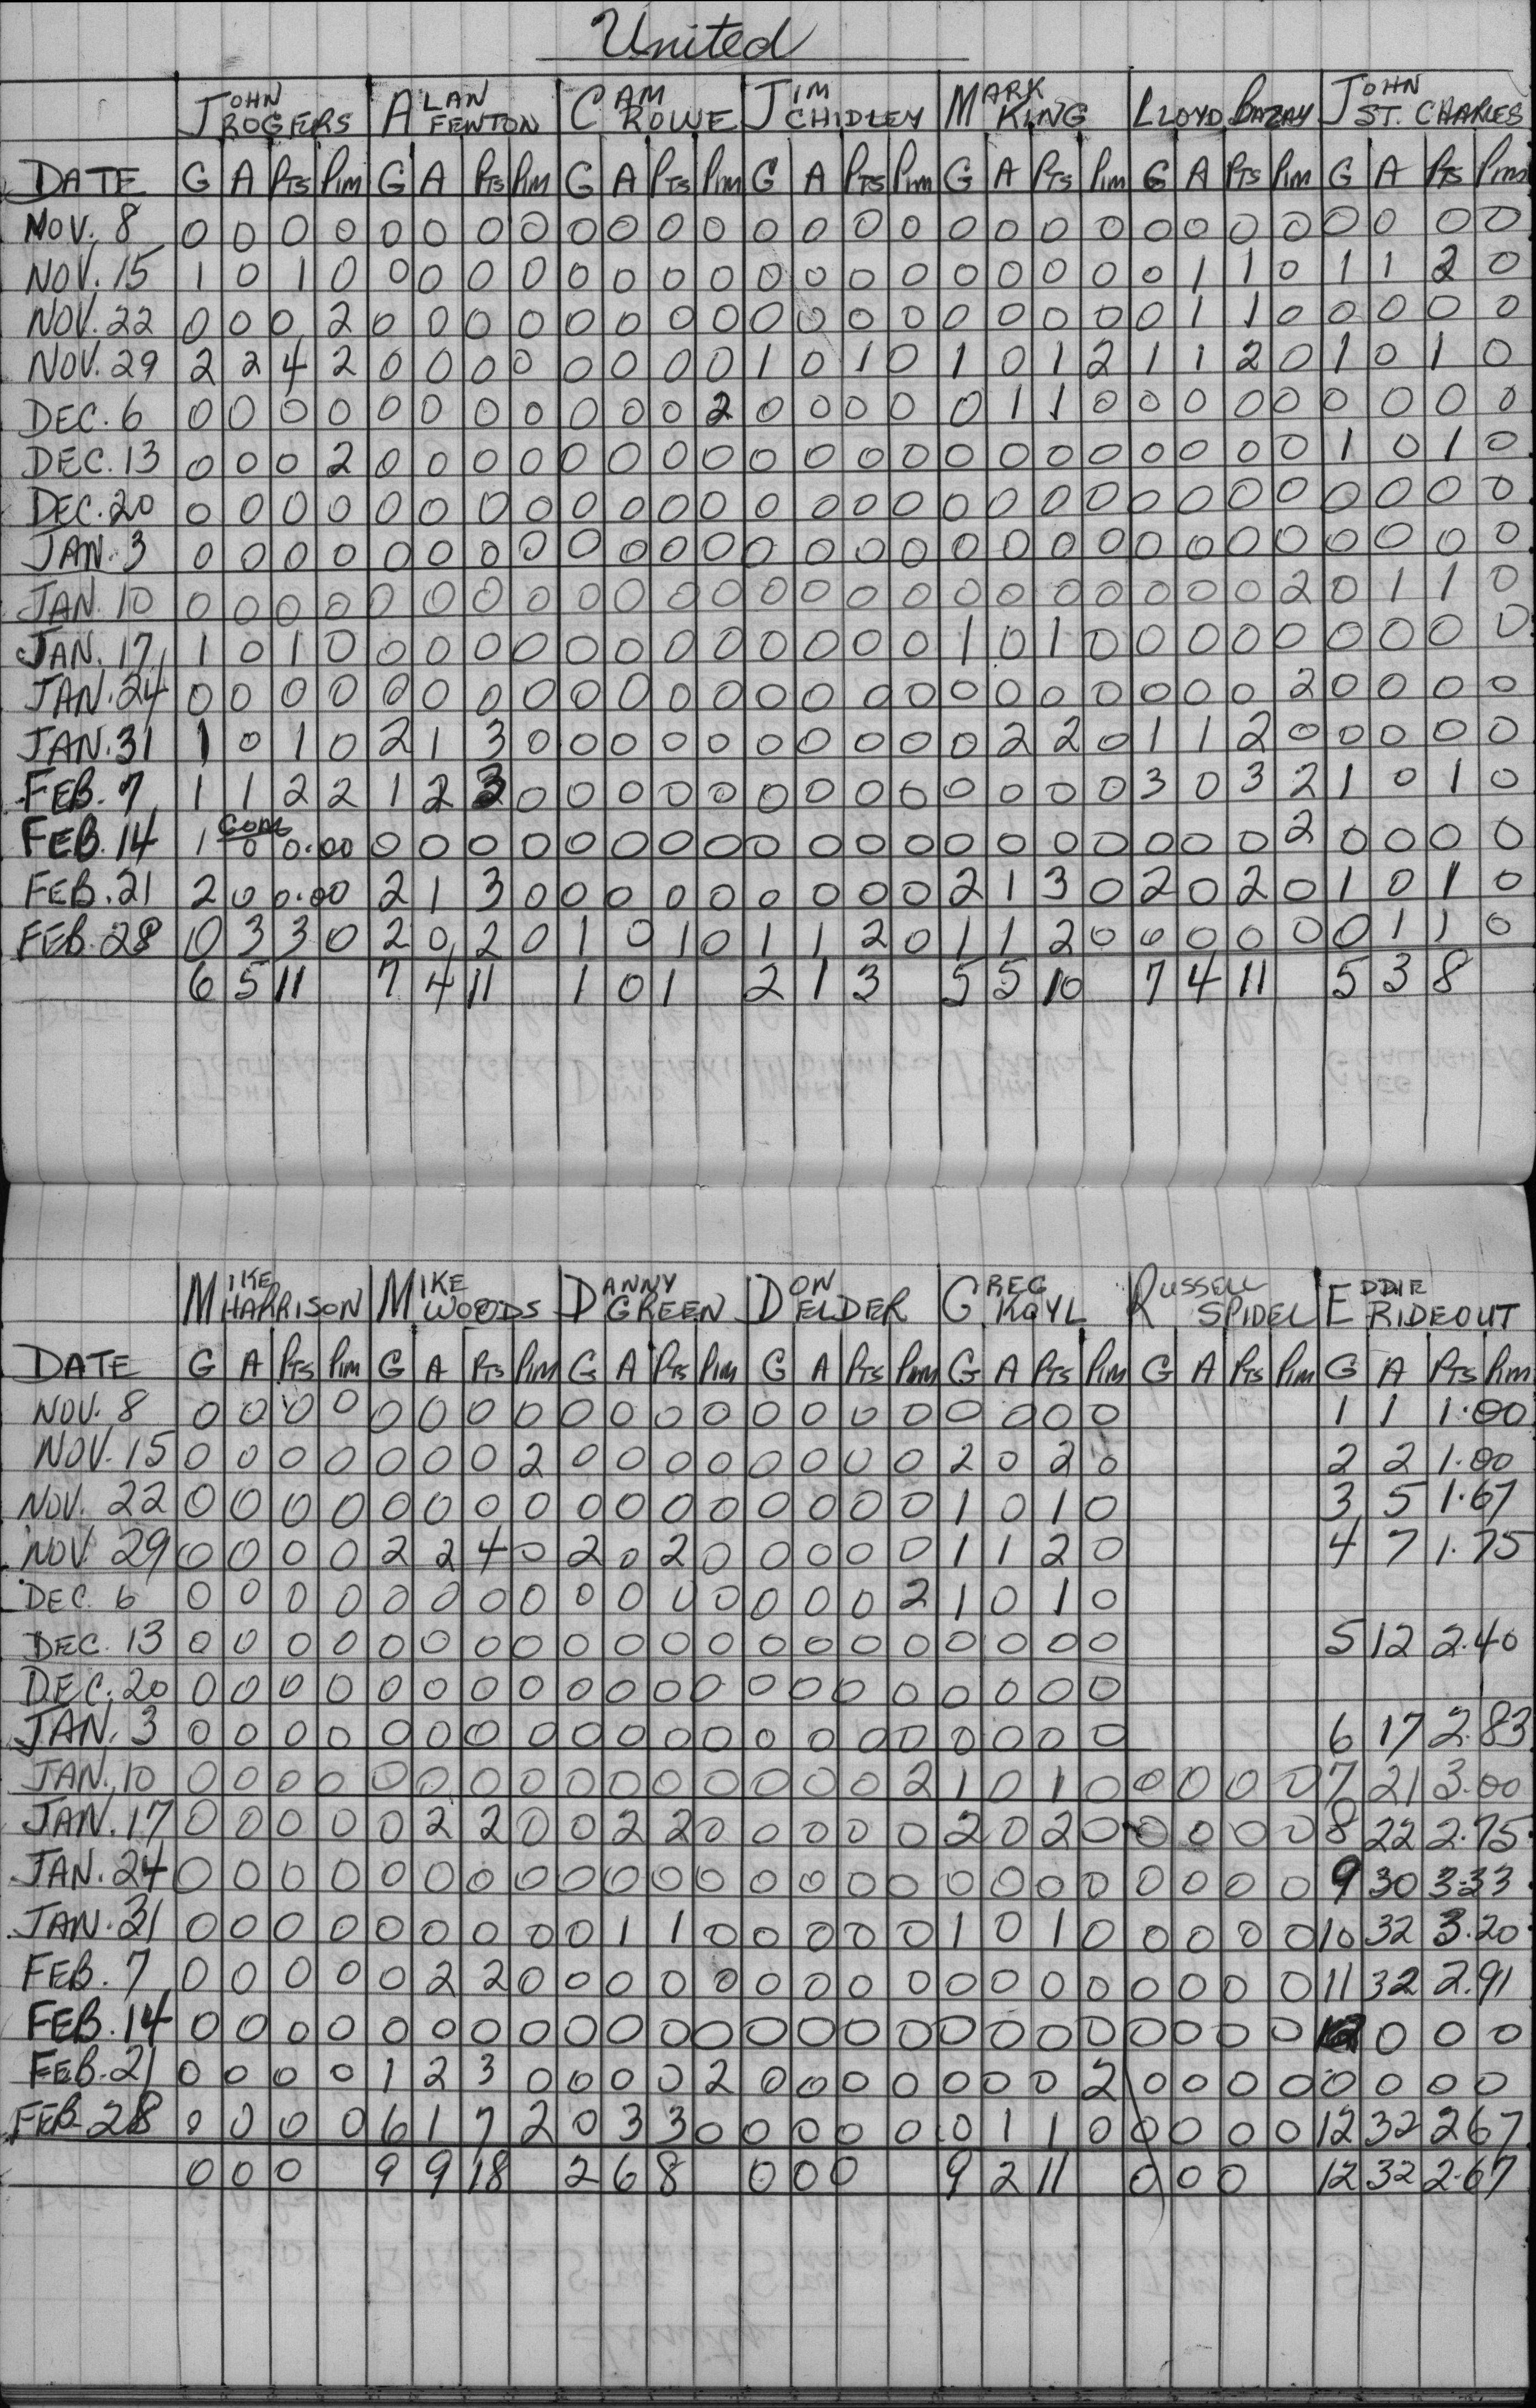 United
JOHN ROGERS ALAN FENTON CAM ROWE JIM CHIDLEY MARK KING LLOYD BAZAY JOHN ST. CHARLES
DATE G A PTS PIM G A PTS PIM G A PTS PIM G A PTS PIM G A PTS PIM G A PTS PIM G A PTS PIM
NOV. 8 0 0 0 0 0 0 0 0 0 0 0 0 0 0 0 0 0 0 0 0 0 0 0 0 0 0 0 0
NOV. 15 1 0 1 0 0 0 0 0 0 0 0 0 0 0 0 0 0 0 0 0 0 1 1 0 1 1 2 0
NOV. 22 0 0 0 2 0 0 0 0 0 0 0 0 0 0 0 0 0 0 0 0 0 1 1 0 0 0 0 0
NOV. 29 2 2 4 2 0 0 0 0 0 0 0 0 1 0 1 0 1 0 1 2 1 1 2 0 1 0 1 0
DEC. 6 0 0 0 0 0 0 0 0 0 0 0 2 0 0 0 0 0 1 1 0 0 0 0 0 0 0 0 0
DEC. 13 0 0 0 2 0 0 0 0 0 0 0 0 0 0 0 0 0 0 0 0 0 0 0 0 1 0 1 0
DEC. 20 0 0 0 0 0 0 0 0 0 0 0 0 0 0 0 0 0 0 0 0 0 0 0 0 0 0 0 0
JAN. 3 0 0 0 0 0 0 0 0 0 0 0 0 0 0 0 0 0 0 0 0 0 0 0 0 0 0 0 0
JAN. 10 0 0 0 0 0 0 0 0 0 0 0 0 0 0 0 0 0 0 0 0 0 0 0 2 0 1 1 0
JAN. 17 1 0 1 0 0 0 0 0 0 0 0 0 0 0 0 0 1 0 1 0 0 0 0 0 0 0 0 0
JAN. 24 0 0 0 0 0 0 0 0 0 0 0 0 0 0 0 0 0 0 0 0 0 0 0 2 0 0 0 0
JAN. 31 1 0 1 0 2 1 3 0 0 0 0 0 0 0 0 0 0 2 2 0 1 1 2 0 0 0 0 0
FEB. 7 1 1 2 2 1 2 3 0 0 0 0 0 0 0 0 0 0 0 0 0 3 0 3 2 1 0 1 0
FEB. 14 1 GOAL 0 0.00 0 0 0 0 0 0 0 0 0 0 0 0 0 0 0 0 0 0 0 2 0 0 0 0
FEB. 21 2 0 0.00 2 1 3 0 0 0 0 0 0 0 0 0 2 1 3 0 2 0 2 0 1 0 1 0
FEB. 28 0 3 3 0 2 0 2 0 1 0 1 0 1 1 2 0 1 1 2 0 0 0 0 0 0 1 1 0
6 5 11 7 4 11 1 0 1 2 1 3 5 5 10 7 4 11 5 3 8
MIKE HARRISON MIKE WOODS DANNY GREEN DON ELDER GREG KOYL RUSSELL SPIDEL EDDIE RIDEOUT
DATE G A PTS PIM G A PTS PIM G A PTS PIM G A PTS PIM G A PTS PIM G A PTS PIM G A PTS PIM
NOV. 8 0 0 0 0 0 0 0 0 0 0 0 0 0 0 0 0 0 0 0 0 1 1 1.00
NOV. 15 0 0 0 0 0 0 0 2 0 0 0 0 0 0 0 0 2 0 2 0 2 2 1.00
NOV. 22 0 0 0 0 0 0 0 0 0 0 0 0 0 0 0 0 1 0 1 0 3 5 1.67
NOV. 29 0 0 0 0 2 2 4 0 2 0 2 0 0 0 0 0 1 1 2 0 4 7 1.75
DEC. 6 0 0 0 0 0 0 0 0 0 0 0 0 0 0 0 2 1 0 1 0
DEC. 13 0 0 0 0 0 0 0 0 0 0 0 0 0 0 0 0 0 0 0 0 5 12 2.40
DEC. 20 0 0 0 0 0 0 0 0 0 0 0 0 0 0 0 0 0 0 0 0
JAN. 3 0 0 0 0 0 0 0 0 0 0 0 0 0 0 0 0 0 0 0 0 6 17 2.83
JAN. 10 0 0 0 0 0 0 0 0 0 0 0 0 0 0 0 2 1 0 1 0 0 0 0 0 7 21 3.00
JAN. 17 0 0 0 0 0 2 2 0 0 2 2 0 0 0 0 0 2 0 2 0 0 0 0 0 8 22 2.75
JAN. 24 0 0 0 0 0 0 0 0 0 0 0 0 0 0 0 0 0 0 0 0 0 0 0 0 9 30 3.33
JAN. 31 0 0 0 0 0 0 0 0 0 1 1 0 0 0 0 0 1 0 1 0 0 0 0 0 10 32 3.20
FEB. 7 0 0 0 0 0 2 2 0 0 0 0 0 0 0 0 0 0 0 0 0 0 0 0 0 11 32 2.91
FEB. 14 0 0 0 0 0 0 0 0 0 0 0 0 0 0 0 0 0 0 0 0 0 0 0 0 0 0 0
FEB. 21 0 0 0 0 1 2 3 0 0 0 0 2 0 0 0 0 0 0 0 2 0 0 0 0 0 0 0 0
FEB. 28 0 0 0 0 6 1 7 2 0 3 3 0 0 0 0 0 0 1 1 0 0 0 0 0 12 32 2.67
0 0 0 9 9 18 2 6 8 0 0 0 9 2 11 0 0 0 12 32 2.67